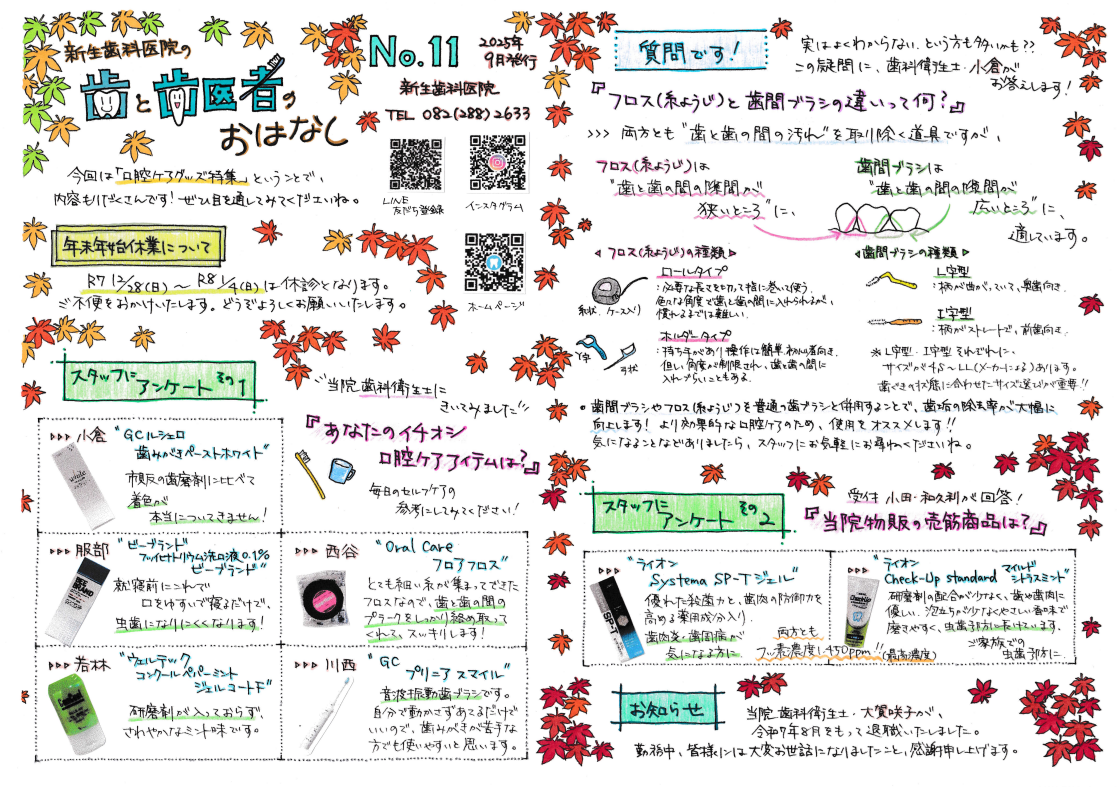 新生歯科医院の
歯と歯医者の
おはなし
No.11
2025年
9月発行
新生歯科医院
TEL 082(288)2633
LINE
友だち登録
インスタグラム
ホームページ
今回は「口腔ケアグッズ特集」ということで、
内容もりだくさんです！ぜひ目を通してみてくださいね。
年末年始休業について
R7 12/28(日)～R8 1/4(日)は休診となります。
ご不便をおかけいたします。どうぞよろしくお願いいたします。
スタッフに
アンケート その1
当院 歯科衛生士に
きいてみました
『あなたのイチオシ
口腔ケアアイテムは？』
毎日のセルフケアの
参考にしてみてください！
▷▷▷ 小倉 "GCルシェロ
歯みがきペーストホワイト"
市販の歯磨剤に比べて
着色が
本当につきません！
▷▷▷ 服部 "ビーブランド
フッ化ナトリウム洗口液0.1%
ビーブランド"
就寝前にこれで
口をゆすいで寝るだけで、
虫歯になりにくくなります！
▷▷▷ 西谷 "Oral Care
フロアフロス"
とても細い糸が集まってできた
フロスなので、歯と歯の間の
プラークをしっかり絡め取って
くれて、スッキリします！
▷▷▷ 若林 "ウェルテック
コンクールペパーミント
ジェルコートF"
研磨剤が入っておらず、
さわやかなミント味です。
▷▷▷ 川西 "GC
プリニア スマイル"
音波振動歯ブラシです。
自分で動かさずあてるだけで
いいので、歯みがきが苦手な
方でも使いやすいと思います。
質問です！
実はよくわからない、という方も多いかも??
この疑問に、歯科衛生士・小倉が
お答えします！
『フロス(糸ようじ)と歯間ブラシの違いって何？』
>>> 両方とも"歯と歯の間の汚れ"を取り除く道具ですが、
フロス(糸ようじ)は
"歯と歯の間の隙間が
狭いところ"に、
歯間ブラシは
"歯と歯の間の隙間が
広いところ"に、
適しています。
◁ フロス(糸ようじ)の種類 ▷
ロールタイプ
：必要な長さをとり、指に巻いて使う。
色々な角度で歯と歯の間に入れられるが、
慣れるまでは難しい。
糸状、ケース入り
ホルダータイプ
：持ち手があり操作は簡単。初心者向き。
但し、角度が制限され、歯と歯の間に
入れづらいこともある。
Y字
弓状
◁ 歯間ブラシの種類 ▷
L字型
：柄が曲がっていて、奥歯向き。
I字型
：柄がストレートで、前歯向き。
※ L字型・I字型 それぞれに、
サイズが4S～LL(メーカーによる)あります。
歯ぐきの状態に合わせたサイズ選びが重要!!
• 歯間ブラシやフロス(糸ようじ)を普通の歯ブラシと併用することで、歯垢の除去率が大幅に
向上します！より効果的な口腔ケアのため、使用をオススメします!!
気になることなどありましたら、スタッフにお気軽にお尋ねくださいね。
スタッフに
アンケート その2
受付 小田・和久利が回答！
『当院物販の売筋商品は？』
"ライオン
Systema SP-Tジェル"
優れた殺菌力と、歯肉の防御力を
高める薬用成分入り。
歯肉炎・歯周病が
気になる方に
"ライオン
Check-Up standard マイルド
シトラスミント"
研磨剤の配合が少なく、歯や歯肉に
優しい。泡立ちが少なくやさしい香味で
磨きやすく、虫歯予防に長けています。
ご家族での
虫歯予防に
両方とも
フッ素濃度1450ppm!!(最高濃度)
お知らせ
当院 歯科衛生士・大賀咲子が、
令和7年8月をもって退職いたしました。
勤務中、皆様には大変お世話になりましたこと、感謝申し上げます。